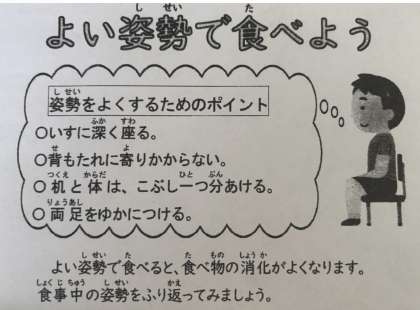 よい姿勢で食べよう
姿勢をよくするためのポイント
○いすに深く座る。
○背もたれに寄りかからない。
○机と体は、こぶし一つ分あける。
○両足をゆかにつける。
よい姿勢で食べると、食べ物の消化がよくなります。
食事中の姿勢をふり返ってみましょう。